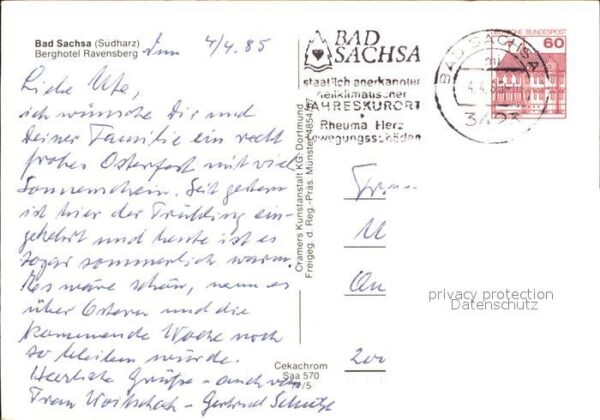 Bad Sachsa (Südharz)
Berghotel Ravensberg
4/4.85
Liebe Ute,
ich wünsche Dir und
Deiner Familie ein recht
frohes Osterfest mit viel
Sonnenschein. Seit gestern
ist hier der Frühling ein-
gekehrt und heute ist es
sogar sommerlich warm.
Es wäre schön, wenn es
über Ostern und die
kommende Woche noch
so bleiben würde.
Herzliche Grüße - auch von
Frau - Gertrud
Cramers Kunstanstalt KG· Dortmund
Freigeg. d. Reg.-Präs. Münster
Cekachrom
Saa 570
BAD
SACHSA
staatlich anerkannter
heilklimatischer
JAHRESKURORT
Rheuma Herz
Bewegungsschäden
BAD SACHSA
4.4.85
DEUTSCHE BUNDESPOST
60
Frau
U
An
200
privacy protection
Datenschutz